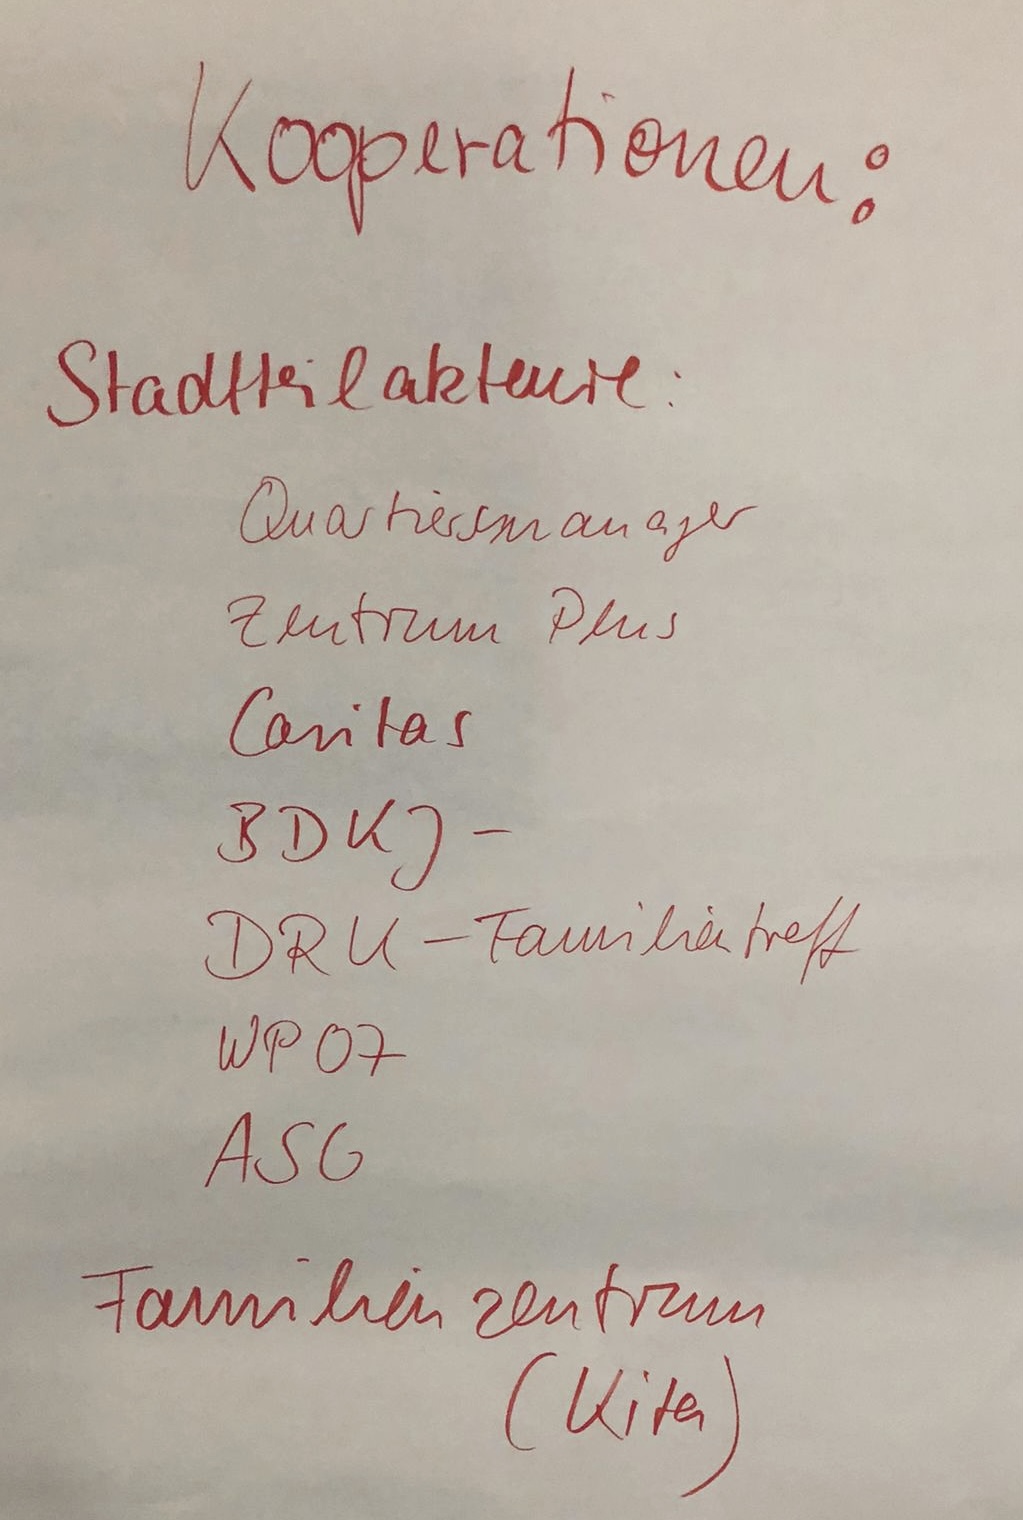 Kooperationen:
Stadtteilakteure:
Quartiersmanager
Zentrum Plus
Caritas
BDKJ -
DRK - Familientreff
WP 07
ASG
Familienzentrum
(Kita)